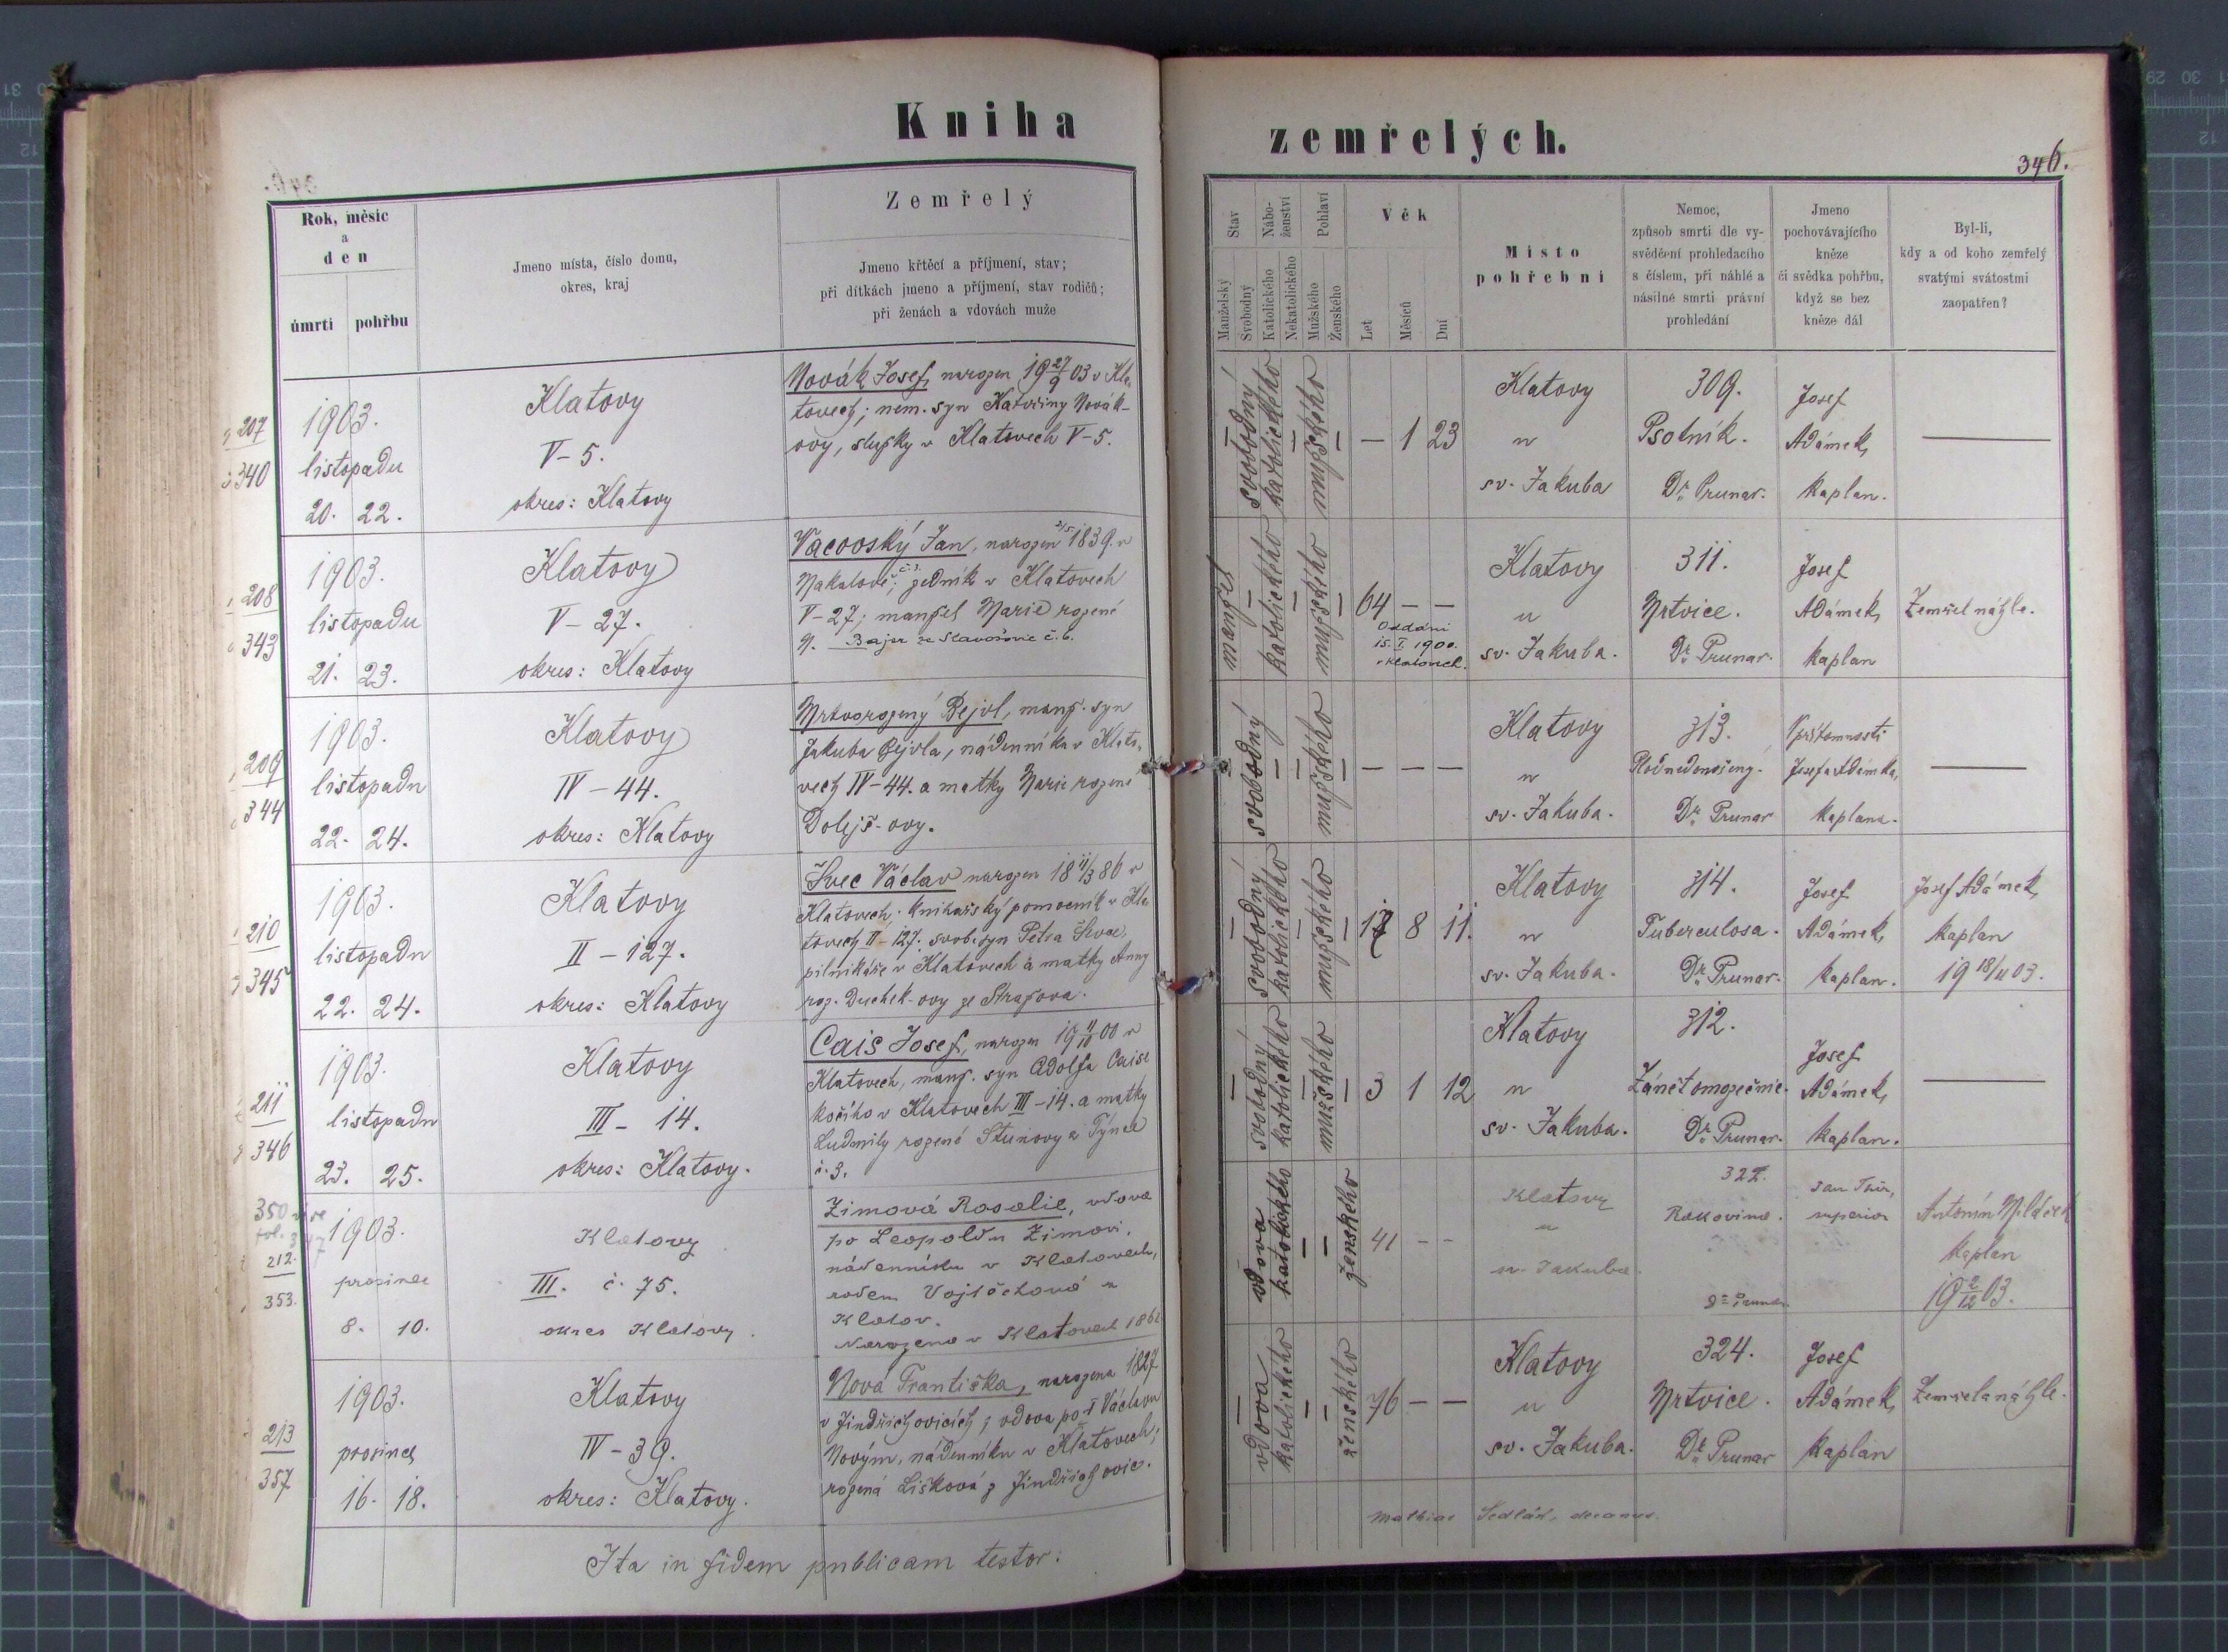 Kniha zemřelých.
346.
Rok, měsíc
a
den
úmrtí pohřbu
Jmeno místa, číslo domu,
okres, kraj
Zemřelý
Jmeno křtěcí a příjmení, stav;
při dítkách jmeno a příjmení, stav rodičů;
při ženách a vdovách muže
Stav
Manželský
Svobodný
Nábo-
ženství
Katolického
Nekatolického
Pohlaví
Mužského
Ženského
Věk
Let
Měsíců
Dní
Místo
pohřební
Nemoc,
způsob smrti dle vy-
svědčení prohledacího
s číslem, při náhlé a
násilné smrti právní
prohledání
Jmeno
pochovávajícího
kněze
či svědka pohřbu,
když se bez
kněze dál
Byl-li,
kdy a od koho zemřelý
svatými svátostmi
zaopatřen?
207
340
1903.
listopadu
20. 22.
Klatovy
V-5.
okres: Klatovy
Novák Josef, narozen 19 27/9 03 v Kla-
tovech; nem. syn Kateřiny Novák-
ovy, služky v Klatovech V-5.
svobodný
katolického
mužského
— 1 23
Klatovy
u
sv. Jakuba
309.
Psotník.
Dr. Prunar.
Josef
Adámek,
kaplan.
—
208
343
1903.
listopadu
21. 23.
Klatovy
V-27.
okres: Klatovy
Vacovský Jan, narozen 1839. v
Makalově, č. 3. zedník v Klatovech
V-27; manžel Marie rozené
Bajer ze Slavošovic č. 6.
manžel
katolického
mužského
64 — —
Oddáni
15. I. 1900.
v Klatovech.
Klatovy
u
sv. Jakuba.
311.
Mrtvice.
Dr. Prunar.
Josef
Adámek,
kaplan
Zemřel náhle.
209
344
1903.
listopadu
22. 24.
Klatovy
IV-44.
okres: Klatovy
Mrtvorozený Bejvl, manž. syn
Jakuba Bejvla, nádenníka v Klato-
vech IV-44. a matky Marie rozené
Dolejš-ovy.
svobodný
mužského
— — —
Klatovy
u
sv. Jakuba.
313.
Plod nedonošený.
Dr. Prunar
V přítomnosti
Josefa Adámka,
kaplana.
—
210
345
1903.
listopadu
22. 24.
Klatovy
II-127.
okres: Klatovy
Švec Václav narozen 18 11/3 86 v
Klatovech; knihařský pomocník v Kla-
tovech II-127. svob. syn Petra Švece,
pilníkáře v Klatovech a matky Anny
roz. Duchek-ovy ze Strašova.
svobodný
katolického
mužského
17 8 11.
Klatovy
u
sv. Jakuba.
314.
Tuberculosa.
Dr. Prunar.
Josef
Adámek,
kaplan.
Josef Adámek,
kaplan
19 18/11 03.
211
346
1903.
listopadu
23. 25.
Klatovy
III-14.
okres: Klatovy.
Cais Josef, narozen 19 11/10 00 v
Klatovech, manž. syn Adolfa Caise
kočího v Klatovech III-14. a matky
Ludmily rozené Stunovy z Týnce
č. 3.
svobodný
katolického
mužského
3 1 12
Klatovy
u
sv. Jakuba.
312.
Zánět omozečnic.
Dr. Prunar.
Josef
Adámek,
kaplan.
—
350 vide
fol. 347
212.
353.
1903.
prosince
8. 10.
Klatovy
III. č. 75.
okres Klatovy.
Zimová Rosalie, vdova
po Leopoldu Zimovi,
nádenníku v Klatovech,
rodem Vojtěchová z
Klatov.
Narozena v Klatovech 1862
vdova
katolického
ženského
41 — —
Klatovy
u
sv. Jakuba.
322.
Rakovina.
Dr. Prunar.
Jan
superior
Antonín
kaplan
19 2/12 03.
213
357
1903.
prosince
16. 18.
Klatovy
IV-39.
okres: Klatovy.
Nová Františka, narozena 1827
v Jindřichovicích; vdova po † Václavu
Novým, nádenníku v Klatovech;
rozená Lišková z Jindřichovic.
vdova
katolického
ženského
76 — —
Klatovy
u
sv. Jakuba.
324.
Mrtvice.
Dr. Prunar
Josef
Adámek,
kaplan
Zemřela náhle.
Ita in fidem publicam testor:
Mathias Sedlák, decanus.